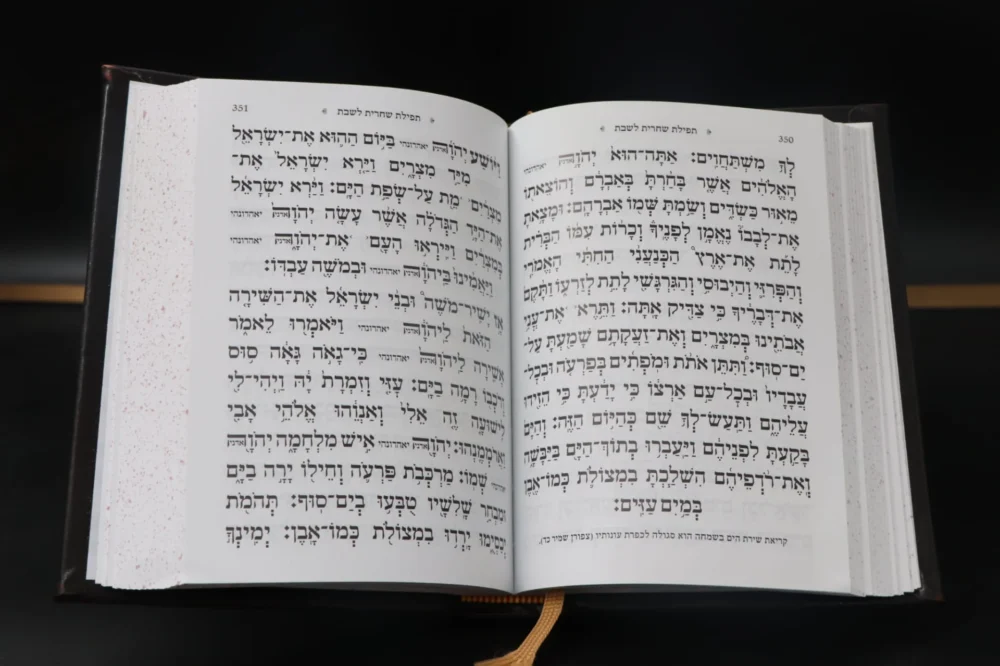 350 תפילת שחרית לשבת
לְךָ מִשְׁתַּחֲוִים: אַתָּה־הוּא יְהֹוָה אדני יאהדונהי
הָאֱלֹהִים אֲשֶׁר בָּחַרְתָּ בְּאַבְרָם וְהוֹצֵאתוֹ
מֵאוּר כַּשְׂדִּים וְשַׂמְתָּ שְּׁמוֹ אַבְרָהָם: וּמָצָאתָ
אֶת־לְבָבוֹ נֶאֱמָן לְפָנֶיךָ וְכָרוֹת עִמּוֹ הַבְּרִית
לָתֵת אֶת־אֶרֶץ הַכְּנַעֲנִי הַחִתִּי הָאֱמֹרִי
וְהַפְּרִזִּי וְהַיְבוּסִי וְהַגִּרְגָּשִׁי לָתֵת לְזַרְעוֹ וַתָּקֶם
אֶת־דְּבָרֶיךָ כִּי צַדִּיק אָתָּה: וַתֵּרֶא אֶת־עֳנִי
אֲבֹתֵינוּ בְּמִצְרָיִם וְאֶת־זַעֲקָתָם שָׁמַעְתָּ עַל־
יַם־סוּף: וַתִּתֵּן אֹתֹת וּמֹפְתִים בְּפַרְעֹה וּבְכָל־
עֲבָדָיו וּבְכָל־עַם אַרְצוֹ כִּי יָדַעְתָּ כִּי הֵזִידוּ
עֲלֵיהֶם וַתַּעַשׂ־לְךָ שֵׁם כְּהַיּוֹם הַזֶּה: וְהַיָּם
בָּקַעְתָּ לִפְנֵיהֶם וַיַּעַבְרוּ בְתוֹךְ־הַיָּם בַּיַּבָּשָׁה
וְאֶת־רֹדְפֵיהֶם הִשְׁלַכְתָּ בִמְצוֹלֹת כְּמוֹ־אֶבֶן
בְּמַיִם עַזִּים:
קריאת שירת הים בשמחה הוא סגולה לכפרת עונותיו (צפורן שמיר כד).
תפילת שחרית לשבת 351
וַיּוֹשַׁע יְהֹוָה אדני יאהדונהי בַּיּוֹם הַהוּא אֶת־יִשְׂרָאֵל
מִיַּד מִצְרָיִם וַיַּרְא יִשְׂרָאֵל אֶת־
מִצְרַיִם מֵת עַל־שְׂפַת הַיָּם: וַיַּרְא יִשְׂרָאֵל
אֶת־הַיָּד הַגְּדֹלָה אֲשֶׁר עָשָׂה יְהֹוָה אדני יאהדונהי
בְּמִצְרַיִם וַיִּירְאוּ הָעָם אֶת־יְהֹוָה אדני יאהדונהי
וַיַּאֲמִינוּ בַּיהֹוָה אדני יאהדונהי וּבְמֹשֶׁה עַבְדּוֹ:
אָז יָשִׁיר־מֹשֶׁה וּבְנֵי יִשְׂרָאֵל אֶת־הַשִּׁירָה
הַזֹּאת לַיהֹוָה אדני יאהדונהי וַיֹּאמְרוּ לֵאמֹר
אָשִׁירָה לַיהֹוָה אדני יאהדונהי כִּי־גָאֹה גָּאָה סוּס
וְרֹכְבוֹ רָמָה בַיָּם: עָזִּי וְזִמְרָת יָהּ וַיְהִי־לִי
לִישׁוּעָה זֶה אֵלִי וְאַנְוֵהוּ אֱלֹהֵי אָבִי
וַאֲרֹמְמֶנְהוּ: יְהֹוָה אדני יאהדונהי אִישׁ מִלְחָמָה יְהֹוָה אדני
יאהדונהי שְׁמוֹ: מַרְכְּבֹת פַּרְעֹה וְחֵילוֹ יָרָה בַיָּם
וּמִבְחַר שָׁלִשָׁיו טֻבְּעוּ בְיַם־סוּף: תְּהֹמֹת
יְכַסְיֻמוּ יָרְדוּ בִמְצוֹלֹת כְּמוֹ־אָבֶן: יְמִינְךָ